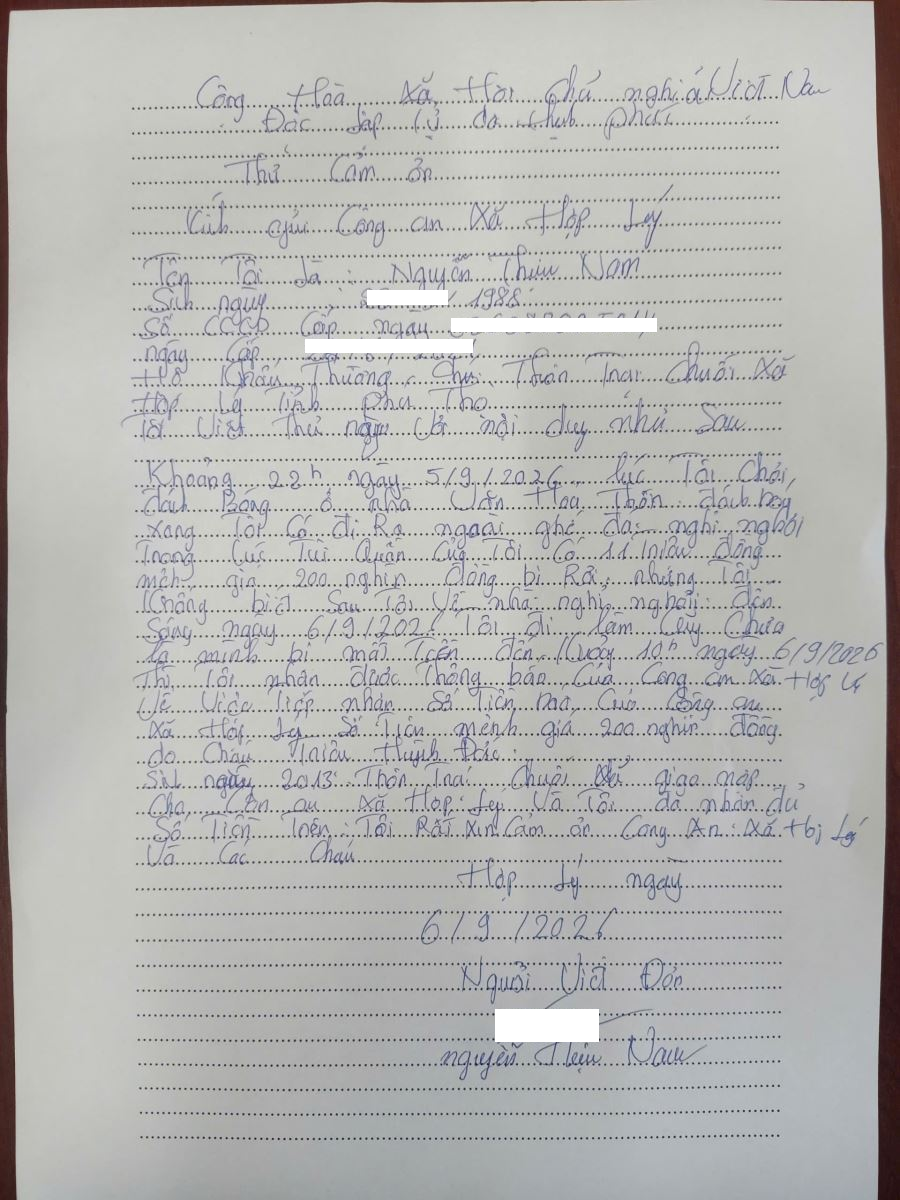 Công Hoà Xã Hội chủ nghĩa Việt Nam
Đôc lâp tự do hạnh phúc
Thứ Cảm ơn
Kính gửi Công an Xã Hợp Lý
Tên Tôi là : Nguyễn Thiệu Nam
Sinh ngày 1988
Số CCCD Cấp ngày
ngày Cấp
Hộ Khẩu Thường Chú Thôn Trai Chuối Xã
Hợp Lý Tỉnh phu Tho
Tôi Viết Thư này Vơi nội duy như Sau
Khoảng 22h ngày 5/9/2026 lúc Tôi Chơi
đánh Bóng ở nhà Văn Hoa Thôn đánh bóng
xong Tôi Có đi Ra ngoài ghé đá nghỉ ngơi
Trong lúc Túi Quần Của Tôi Có 11 triêu đồng
mênh gia 200 nghìn đồng bi Rơi nhưng Tôi
Không biêt Sau Tôi Về nhà nghỉ nghơi đên
Sáng ngày 6/9/2026 Tôi đi làm Cũy Chưa
là mình bi mất Tiền đên 10h ngày 6/9/2026
Thì Tôi nhân được Thông báo Của Công an Xã Hợp Lý
Về Viêc tiếp nhân Số Tiền Công an
Xã Hợp Ly Số Tiền mênh giá 200 nghìn đồng
do Cháu Triêu Huỳnh Đức
Sinh ngày 2013 Thôn Trai Chuối Xã giao nôp
Cho Côn an Xã Hợp Ly Và Tôi đã nhân đủ
Số Tiền Trên Tôi Rất Xin Cảm ơn Cong An Xã Lý
Và Cac Chau
Hợp Lý ngày
6/9/2026
Người Viêt Đơn
nguyễn Thiệu Nam